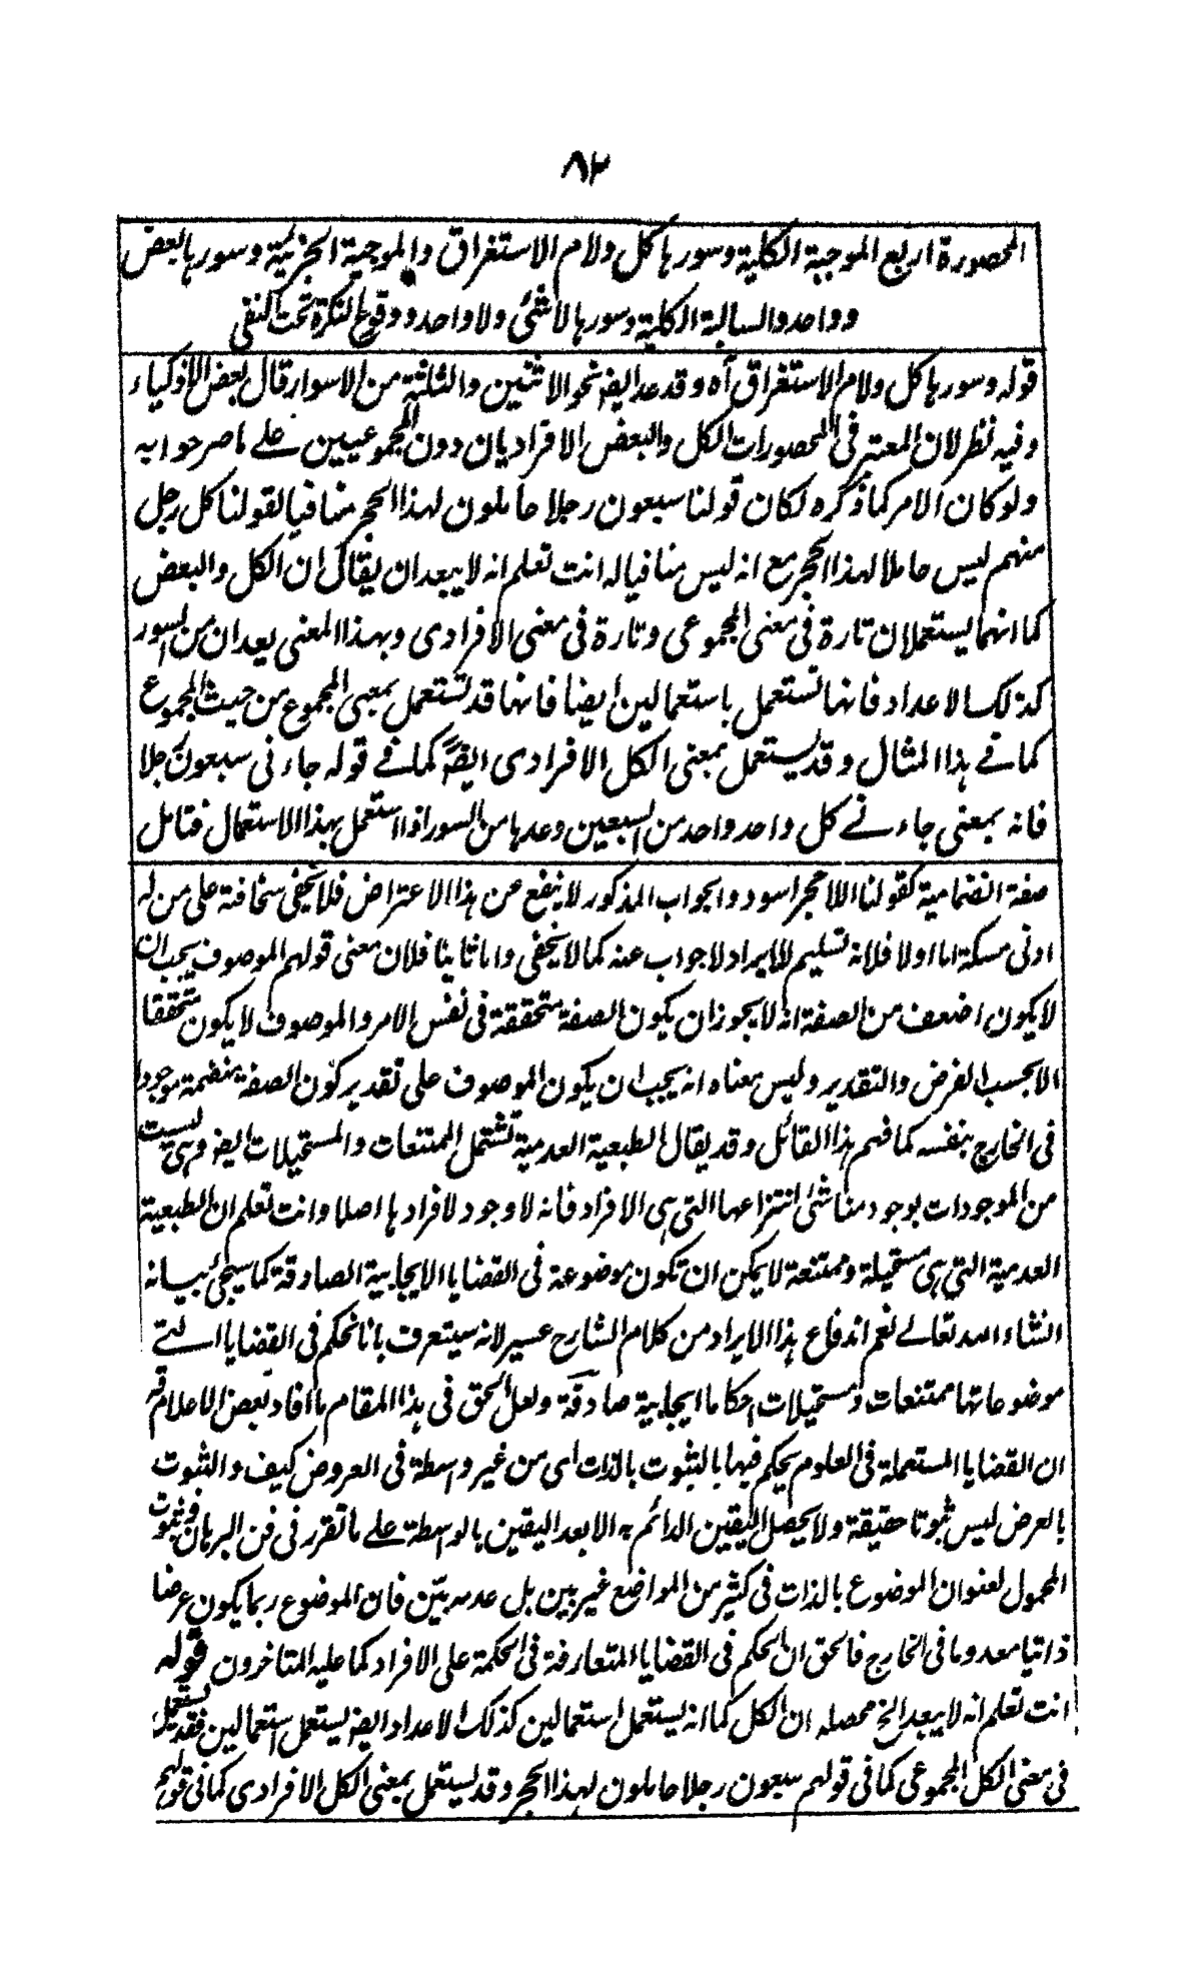 ٨٢
المحصورة اربع الموجبة الكلية وسورها كل ولام الاستغراق والموجبة الجزئية وسورها بعض
وواحد والسالبة الكلية وسورها لاشئ ولا واحد ووقوع النكرة تحت النفى
قوله وسورها كل ولام الاستغراق آه وقد عد ايضا نحو الاثنين والثلثة من الاسوار قال بعض الاذكياء
وفيه نظر لان المعتبر فى المحصورات الكل والبعض الافراديان دون المجموعيين على ما صرحوا به
ولو كان الامر كما ذكره لكان قولنا سبعون رجلا حاملون لهذا الحجر منافيا لقولنا كل رجل
منهم ليس حاملا لهذا الحجر مع انه ليس منافيا له انت تعلم انه لا يبعد ان يقال ان الكل والبعض
كما انهما يستعملان تارة فى معنى المجموعى وتارة فى معنى الافرادى وبهذا المعنى يعدان من السور
كذلك الاعداد فانها تستعمل باستعمالين ايضا فانها قد تستعمل بمعنى المجموع من حيث المجموع
كما فے هذا المثال وقد يستعمل بمعنى الكل الافرادى ايضا كما فے قوله جاء نى سبعون رجلا
فانه بمعنى جاء نے كل واحد واحد من السبعين وعدها من السور اذا استعمل بهذا الاستعمال فتامل
صفة انضمامية كقولنا اللاحجر اسود والجواب المذكور لا ينفع عن هذا الاعتراض فلا يخفى سخافته على من له
ادنى مسكة اما اولا فلانه تسليم للايراد لا جواب عنه كما لا يخفى واما ثانيا فلان معنى قولهم الموصوف يجب ان
لا يكون اضعف من الصفة انه لا يجوز ان يكون الصفة متحققة فى نفس الامر والموصوف لا يكون متحققا
الا بحسب الفرض والتقدير وليس معناه انه يجب ان يكون الموصوف على تقدير كون الصفة منضمة موجودا
فى الخارج بنفسه كما فهم هذا القائل وقد يقال الطبعية العدمية تشتمل الممتنعات والمستحيلات ايضا وهى ليست
من الموجودات بوجود مناشئ انتزاعها التى هى الافراد فانه لا وجود لافرادها اصلا وانت تعلم ان الطبعية
العدمية التى هى مستحيلة وممتنعة لا يمكن ان تكون موضوعة فى القضايا الايجابية الصادقة كما سيجئ بيانه
انشاء الله تعالے نعم اندفاع هذا الايراد من كلام الشارح عسير لانه سيتعرف بانا نحكم فى القضايا التے
موضوعاتها ممتنعات ومستحيلات احكاما ايجابية صادقة ولعل الحق فى هذا المقام ما افاد بعض الاعلام قه
ان القضايا المستعملة فى العلوم يحكم فيها بالثبوت بالذات اى من غير واسطة فى العروض كيف والثبوت
بالعرض ليس ثبوتا حقيقة ولا يحصل اليقين الدائم به الا بعد اليقين بالواسطة على ما تقرر فى فن البرهان وثبوت
المحمول لعنوان الموضوع بالذات فى كثير من المواضع غير بين بل عدمه بيّن فان الموضوع ربما يكون عرضا
ذاتيا معدوما فى الخارج فالحق ان الحكم فى القضايا المتعارفة فى الحكمة على الافراد كما عليه المتاخرون قوله
انت تعلم انه لا يبعد الخ محصله ان الكل كما انه يستعمل استعمالين كذلك الاعداد ايضا يستعمل استعمالين فقد يستعمل
فى معنى الكل المجموعى كما فى قولهم سبعون رجلا حاملون لهذا الحجر وقد يستعمل بمعنى الكل الافرادى كما فى قولهم